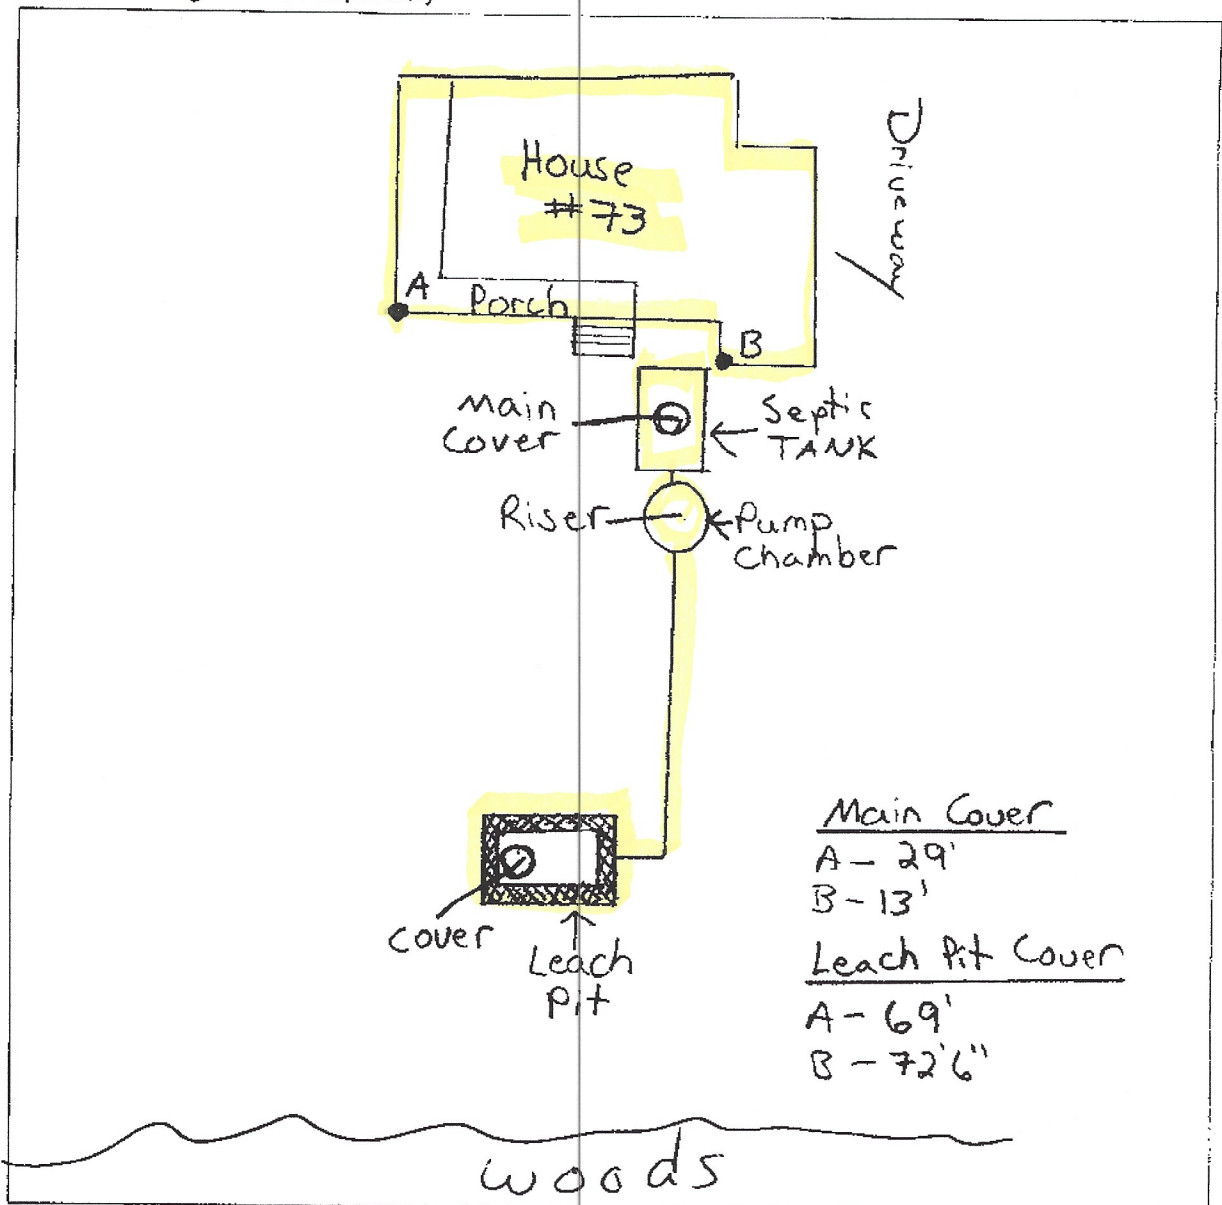 House
#73
Driveway
A
Porch
B
Main
Cover
Septic
TANK
Riser
Pump
Chamber
Main Cover
A - 29'
B - 13'
cover
Leach
pit
Leach Pit Cover
A - 69'
B - 72'6"
woods